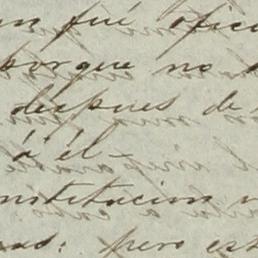 fué ofic
porque no
despues de
á él-
nstitucion
pero est